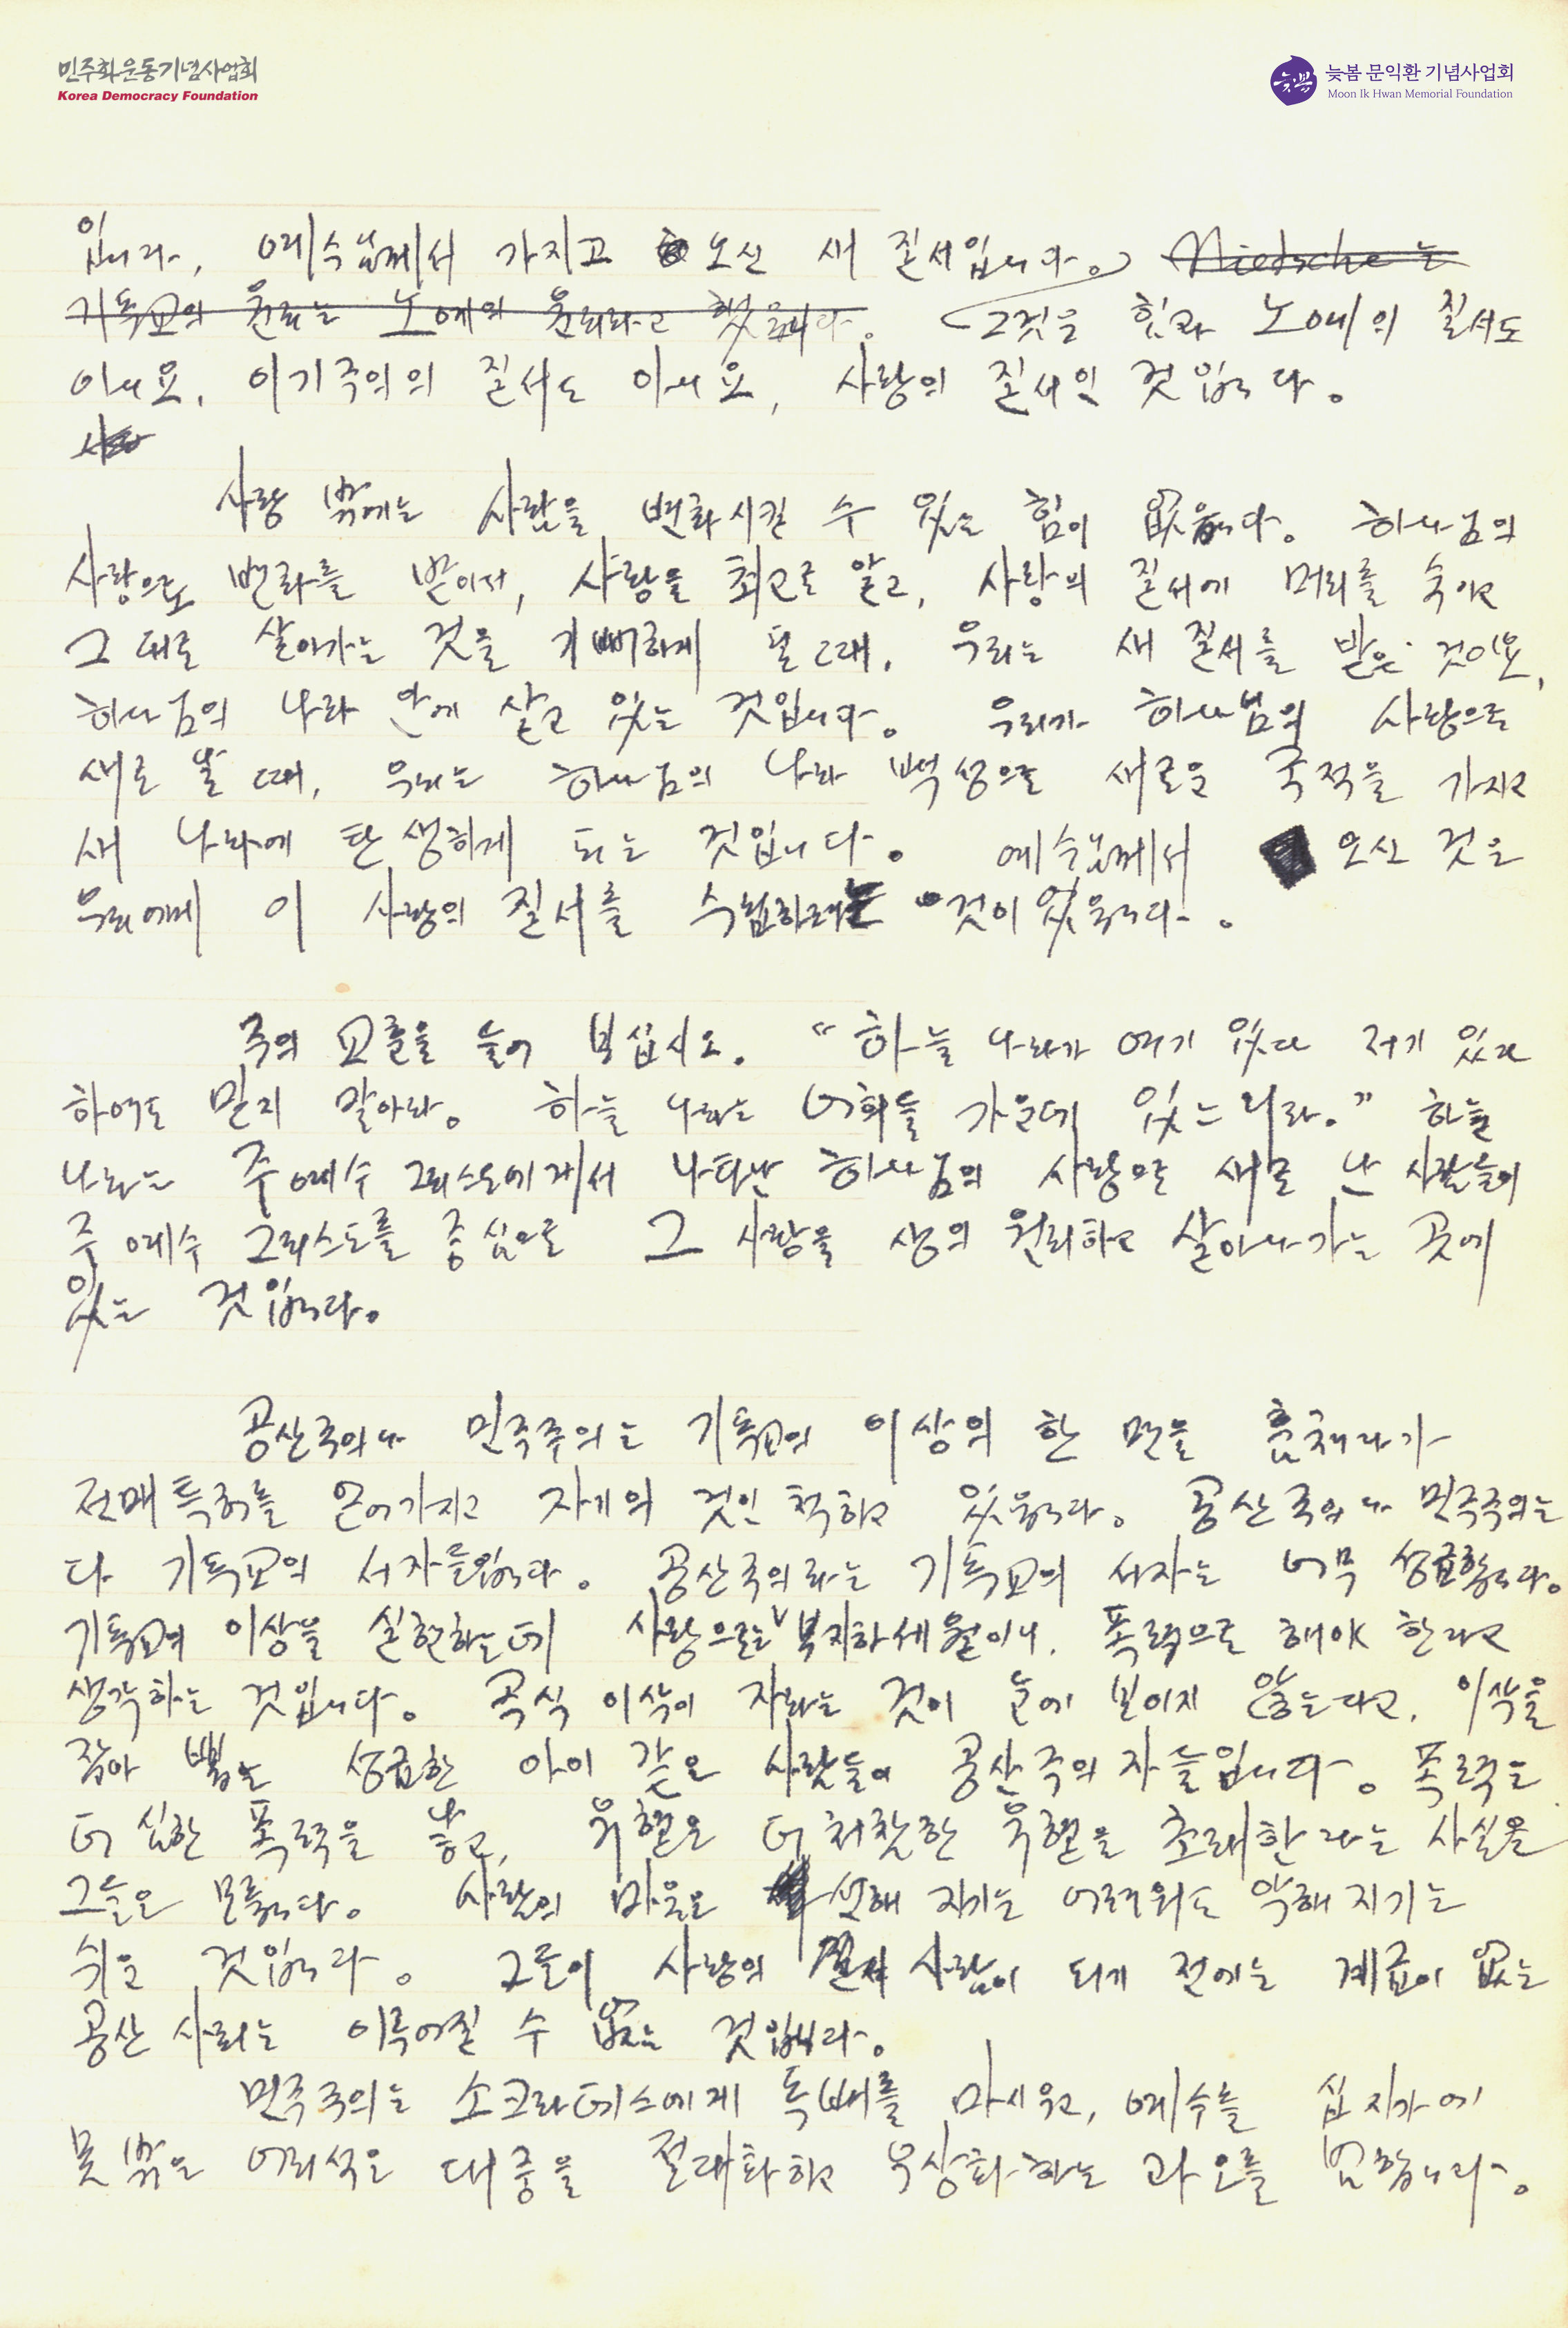 민주화운동기념사업회
Korea Democracy Foundation
늦봄 문익환 기념사업회
Moon Ik Hwan Memorial Foundation
입니다. 예수님께서 가지고 오신 새 질서입니다. Nietsche는
기독교의 윤리는 노예의 윤리라고 했읍니다. 그것은 힘과 노예의 질서도
아니요, 이기주의의 질서도 아니요, 사랑의 질서인 것입니다.
사랑 밖에는 사람을 변화시킬 수 있는 힘이 없읍니다. 하나님의
사랑으로 변화를 받아서, 사랑을 최고로 알고, 사랑의 질서에 머리를 숙이고
그대로 살아가는 것을 기뻐하게 될 때, 우리는 새 질서를 받은 것이요,
하나님의 나라 안에 살고 있는 것입니다. 우리가 하나님의 사랑으로
새로 날 때, 우리는 하나님의 나라 백성으로 새로운 국적을 가지고
새 나라에 탄생하게 되는 것입니다. 예수님께서 오신 것은
우리에게 이 사랑의 질서를 수립하려는 것이었읍니다.
주의 교훈을 들어 보십시오. “하늘 나라가 여기 있다 저기 있다
하여도 믿지 말아라. 하늘 나라는 너희들 가운데 있느니라.” 하늘
나라는 주 예수 그리스도에게서 나타난 하나님의 사랑으로 새로 난 사람들이
주 예수 그리스도를 중심으로 그 사랑을 생의 원리하고 살아나가는 곳에
있는 것입니다.
공산주의나 민주주의는 기독교의 이상의 한 면을 훔쳐다가
전매특허를 얻어가지고 자기의 것인 척하고 있읍니다. 공산주의나 민주주의는
다 기독교의 서자들입니다. 공산주의라는 기독교의 서자는 너무 성급합니다.
기독교의 이상을 실현하는데 사랑으로는 부지하세월이니, 폭력으로 해야 한다고
생각하는 것입니다. 곡식 이삭이 자라는 것이 눈에 보이지 않는다고, 이삭을
잡아 뽑는 성급한 아이 같은 사람들이 공산주의자들입니다. 폭력은
더 심한 폭력을 낳고, 유혈은 더 처참한 유혈을 초래한다는 사실을
그들은 모릅니다. 사람의 마음은 선해 지기는 어려워도 악해 지기는
쉬운 것입니다. 그들이 사랑의 사람이 되기 전에는 계급이 없는
공산 사회는 이루어질 수 없는 것입니다.
민주주의는 소크라테스에게 독배를 마시우고, 예수를 십자가에
못 밖은 어리석은 대중을 절대화하고 우상화하는 과오를 범합니다.